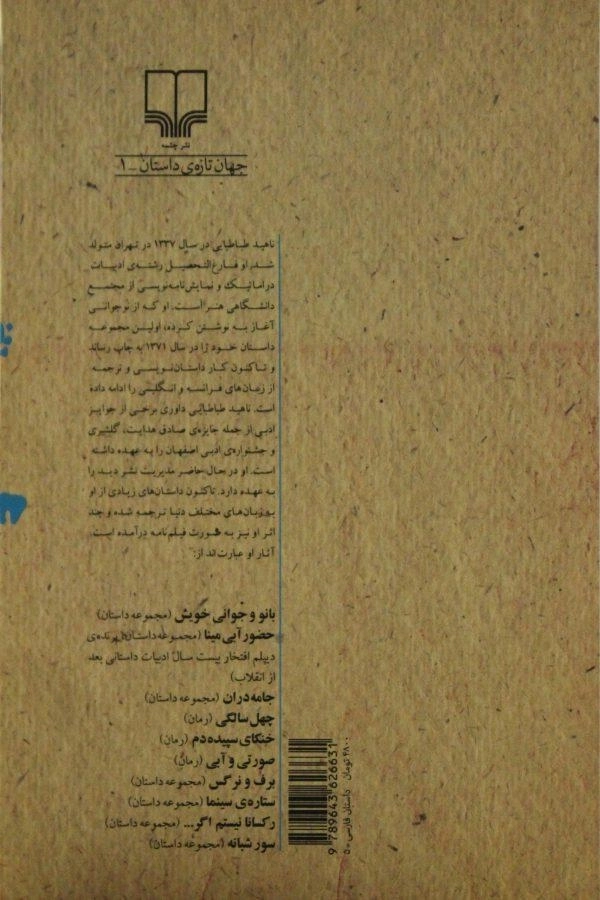 نشر چشمه
جهان تازه‌ی داستان ـ ۱
ناهید طباطبایی در سال ۱۳۳۷ در تهران متولد
شد. او فارغ‌التحصیل رشته‌ی ادبیات
دراماتیک و نمایش‌نامه‌نویسی از مجتمع
دانشگاهی هنر است. او که از نوجوانی
آغاز به نوشتن کرده، اولین مجموعه
داستان خود را در سال ۱۳۷۱ به چاپ رساند
و تاکنون کار داستان‌نویسی و ترجمه
از زبان‌های فرانسه و انگلیسی را ادامه داده
است. ناهید طباطبایی داوری برخی از جوایز
ادبی از جمله جایزه‌ی صادق هدایت، گلشیری
و جشنواره‌ی ادبی اصفهان را به عهده داشته
است. او در حال حاضر مدیریت نشر دید را
به عهده دارد. تاکنون داستان‌های زیادی از او
به زبان‌های مختلف دنیا ترجمه شده و چند
اثر او نیز به صورت فیلم‌نامه درآمده است.
آثار او عبارت‌اند از:
بانو و جوانی خویش (مجموعه داستان)
حضور آبی مینا (مجموعه داستان) برنده‌ی
دیپلم افتخار بیست سال ادبیات داستانی بعد
از انقلاب)
جامه‌دران (مجموعه داستان)
چهل سالگی (رمان)
خنکای سپیده‌دم (رمان)
صورتی و آبی (رمان)
برف و نرگس (مجموعه داستان)
ستاره‌ی سینما (مجموعه داستان)
رکسانا نیستم اگر... (مجموعه داستان)
سور شبانه (مجموعه داستان)
9 789643 626631
۴۸۰۰ تومان داستان فارسی - ۵۰